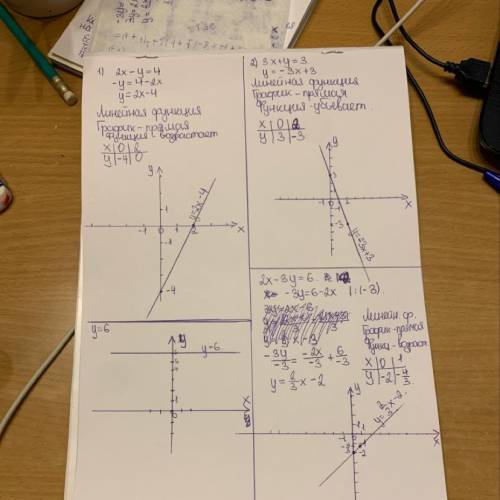 1) 2x-y=4
-y=4-2x
y=2x-4
Линейная функция
График-прямая
Функция-возрастает
x|0|2
y|-4|0
y
-1 0 1
x
y=2x-4
-4
2) 3x+y=3
y=-3x+3
Линейная функция
График-прямая
Функция-убывает
x|0|2
y|3|-3
y
x
-3
y=-3x+3
y=6
y
y=6
x
2x-3y=6
-3y=6-2x |:(-3)
-3y/-3 = -2x/-3 + 6/-3
y=2/3x-2
Линейн ф.
График-прямая
Функц-возраст.
x|0|1
y|-2|-4/3
y
y=2/3x-2
x